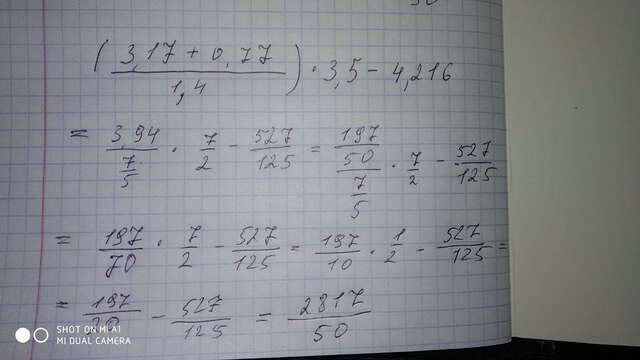 ( (3,17 + 0,77) / 1,4 ) · 3,5 - 4,216
= 3,94 / (7/5) · 7/2 - 527/125 = (197/50) / (7/5) · 7/2 - 527/125
= 197/70 · 7/2 - 527/125 = 197/10 · 1/2 - 527/125 =
= 197/20 - 527/125 = 2817/50
SHOT ON MI A1
MI DUAL CAMERA